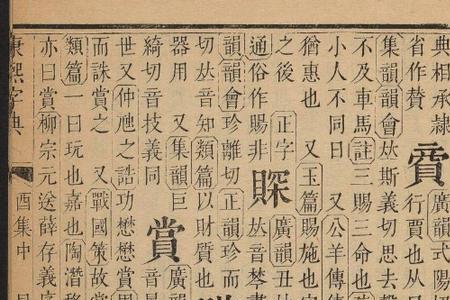 典相承隸
省作賛
廣韻式陽
行賈也从
集韻韻會𠀤斯義切思去
不及車馬註三賜三命也
小人不同日 又公羊傳
猶惠也 又玉篇賜施也
之後 正字
通俗作賜非
賝
廣韻丑
𠀤音琴
韻韻會珍離切正韻珍而
切𠀤音知類篇以財質也
器用 又集韻巨
綺切音技義同
賞
廣韻
音
世又仲虺之誥功懋懋賞
而誅賞之 又戰國策故
類篇一曰玩也嘉也陶潛移
亦曰賞柳宗元送薛存義
康熙字典 酉集中